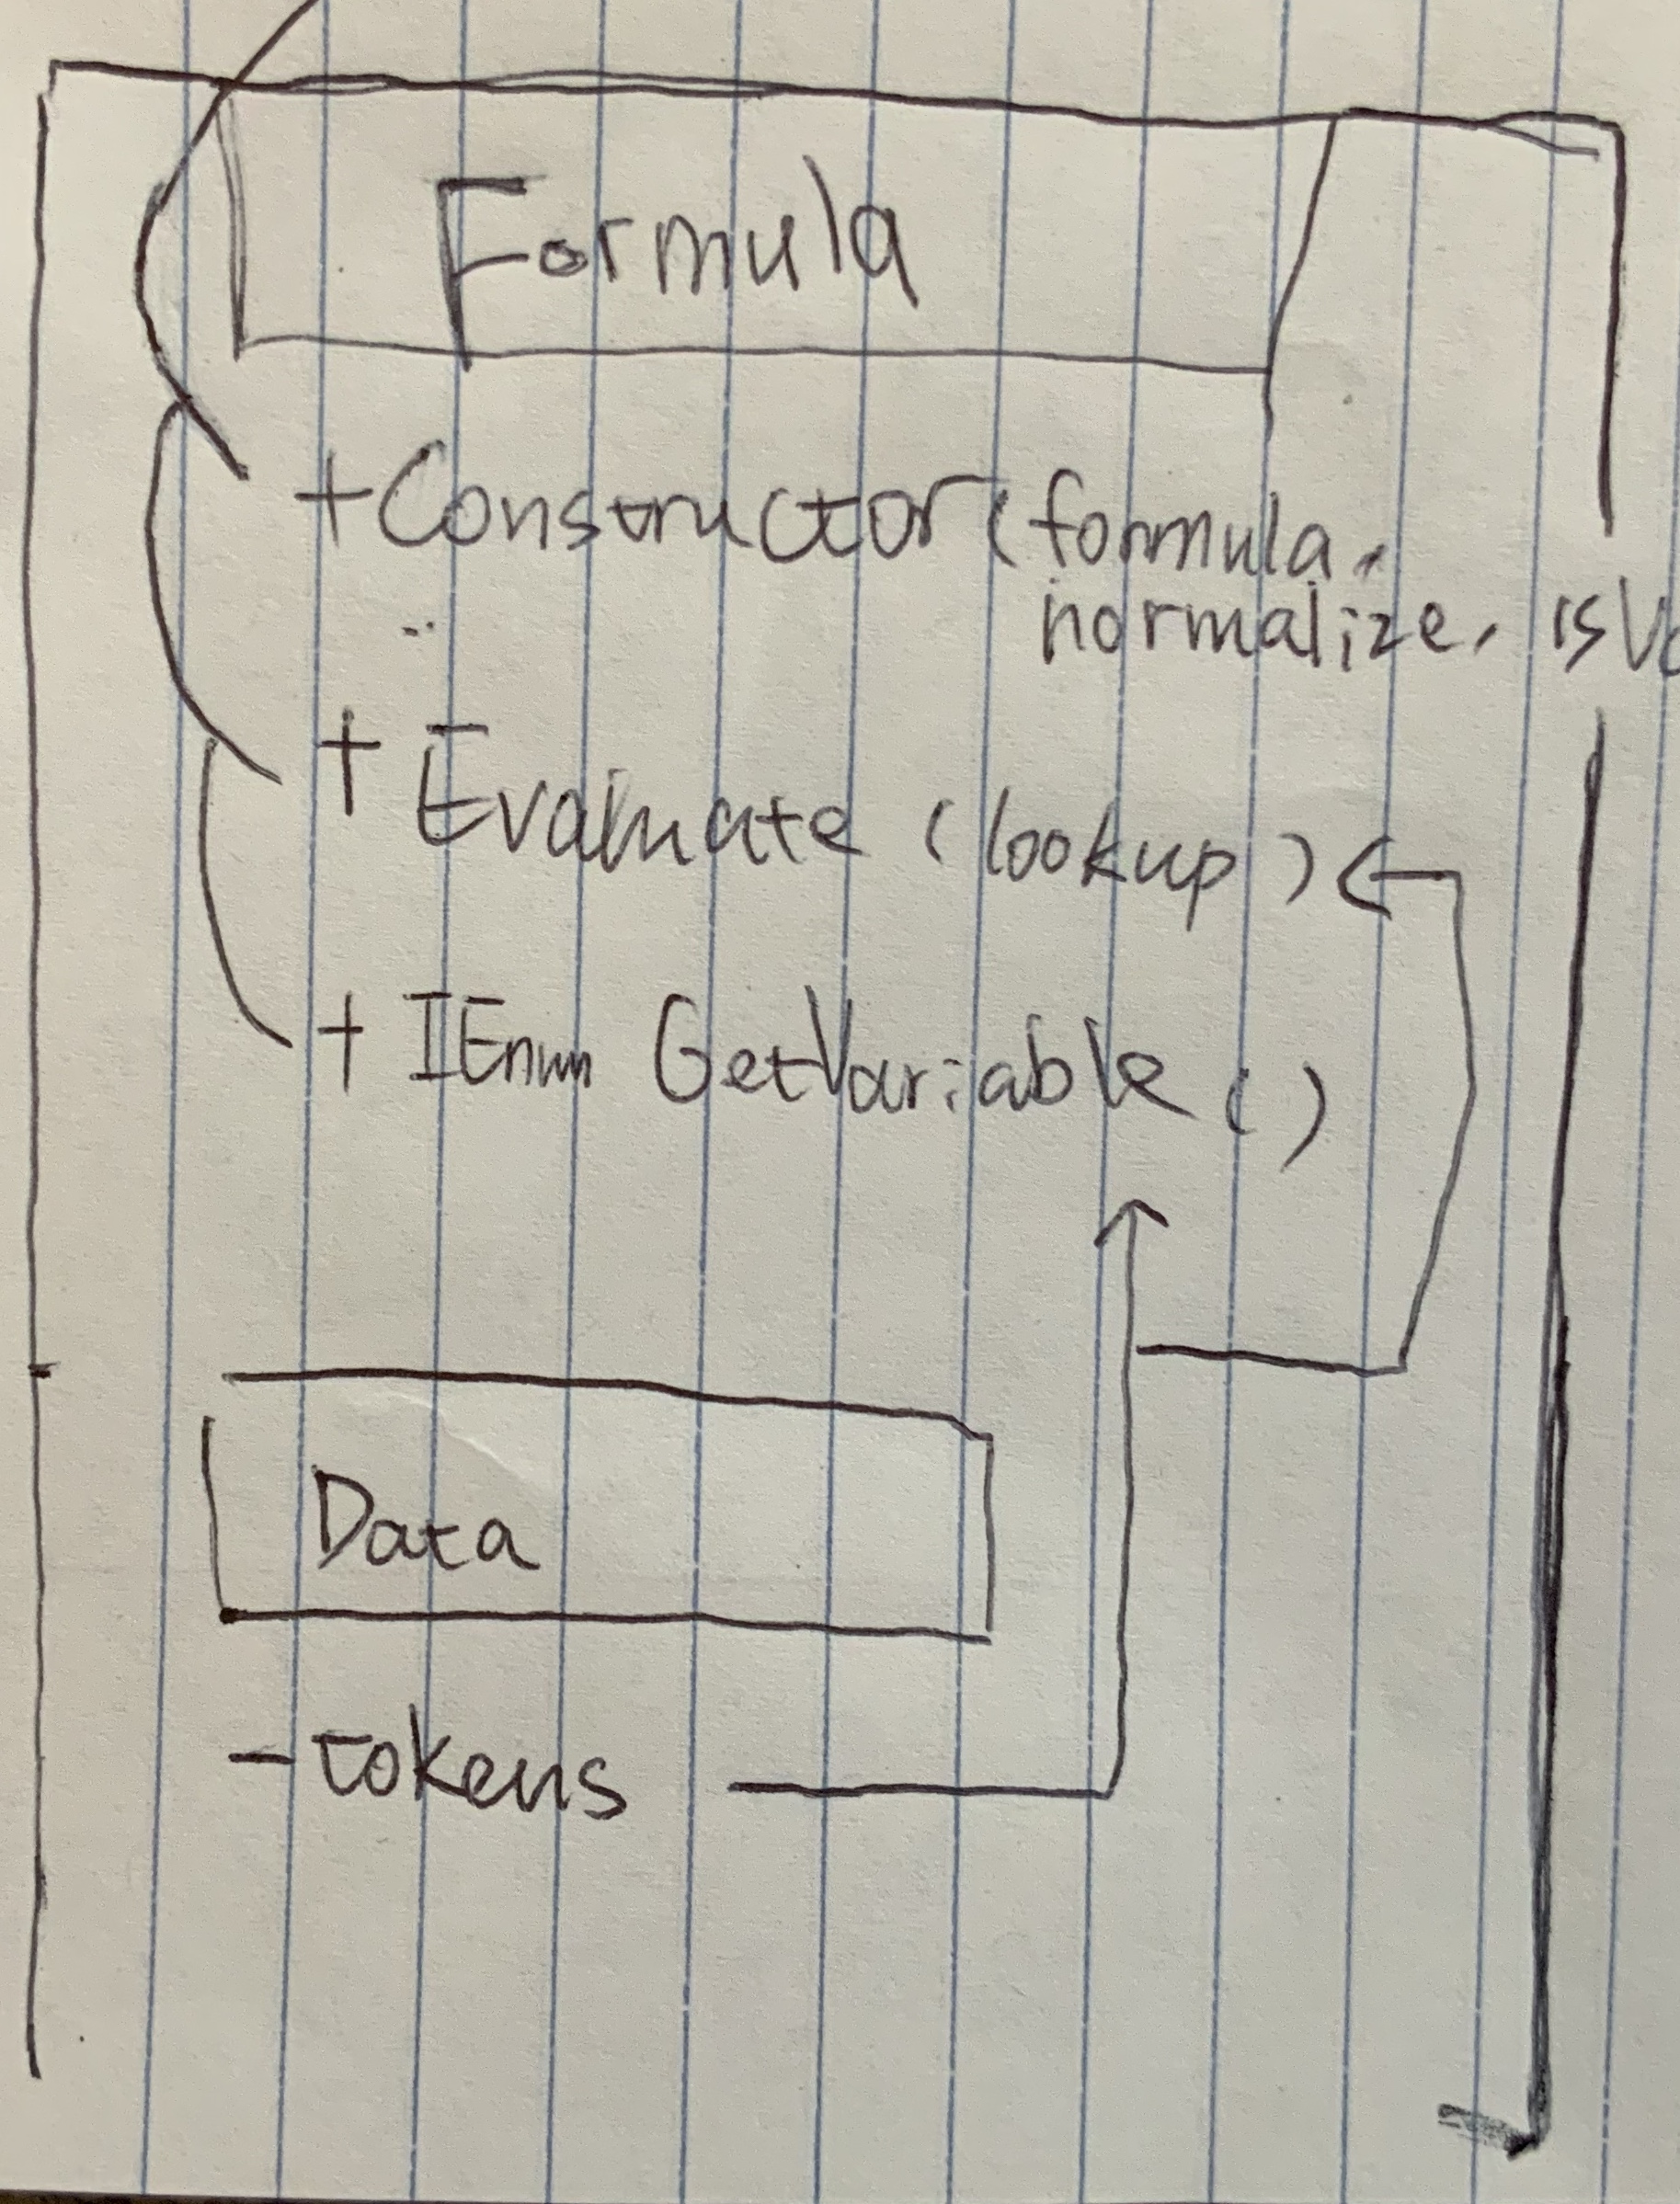 Formula
+Constructor (formula,
normalize, isVa
+ Evaluate (lookup)
+ IEnum GetVariable ()
Data
-tokens